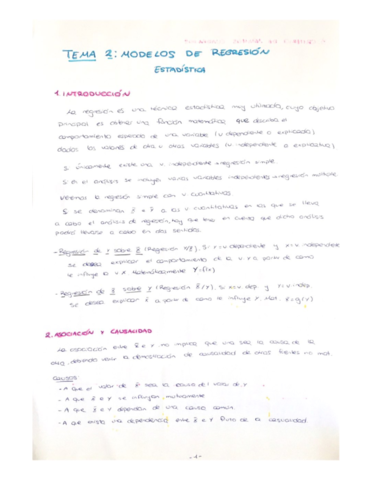 TEMA 2: MODELOS DE REGRESIÓN
ESTADÍSTICA
1. INTRODUCCIÓN
La regresión es una técnica estadística muy utilizada, cuyo objetivo
principal es obtener una función matemática que describa el
comportamiento esperado de una variable (v dependiente o explicada)
dados los valores de otra u otras variables (v independiente o explicativa)
Si únicamente existe una v independiente → regresión simple
Si en el análisis se incluyen varias variables independientes → regresión múltiple
Veremos la regresión simple con v cuantitativas
Si se denominan X e Y a las v cuantitativas en las que se lleva
a cabo el análisis de regresión, hay que tener en cuenta que dicho análisis
podrá llevarse a cabo en dos sentidos:
- Regresión de Y sobre X (Regresión Y/X). Si Y = v dependiente y X = v independiente
Se desea explicar el comportamiento de la v Y a partir de como
le influye la v X. Matemáticamente Y = f(x)
- Regresión de X sobre Y (Regresión X/Y). Si X = v dep. y Y = v indep.
Se desea explicar X a partir de como le influye Y. Mat. X = g(Y)
2. ASOCIACIÓN Y CAUSALIDAD
La asociación entre X e Y no implica que una sea la causa de la
otra, debiendo venir la demostración de causalidad de otras fuentes no mat.
Causas:
- A que el valor de X sea la causa del valor de Y
- A que X e Y se influyan mutuamente
- A que X e Y dependan de una causa común
- A que exista una dependencia entre X e Y fruto de la casualidad
-1-